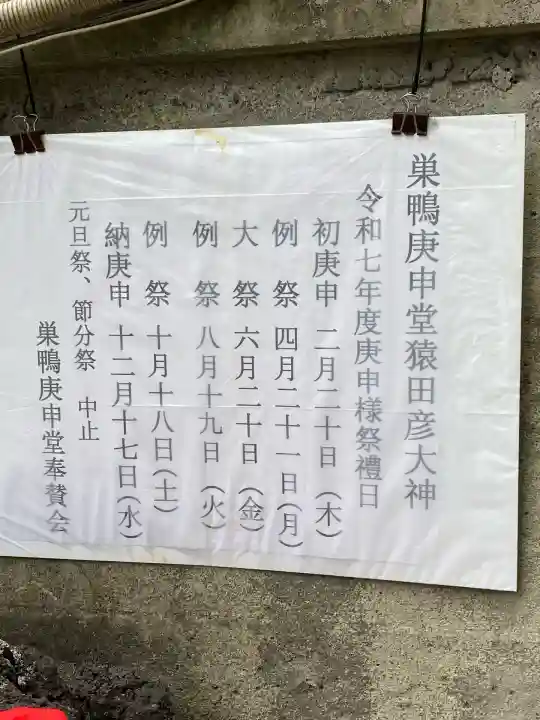 巣鴨庚申堂猿田彦大神
令和七年度庚申様祭禮日
初庚申 二月二十日(木)
例祭 四月二十一日(月)
大祭 六月二十日(金)
例祭 八月十九日(火)
例祭 十月十八日(土)
納庚申 十二月十七日(水)
元旦祭、節分祭 中止
巣鴨庚申堂奉賛会